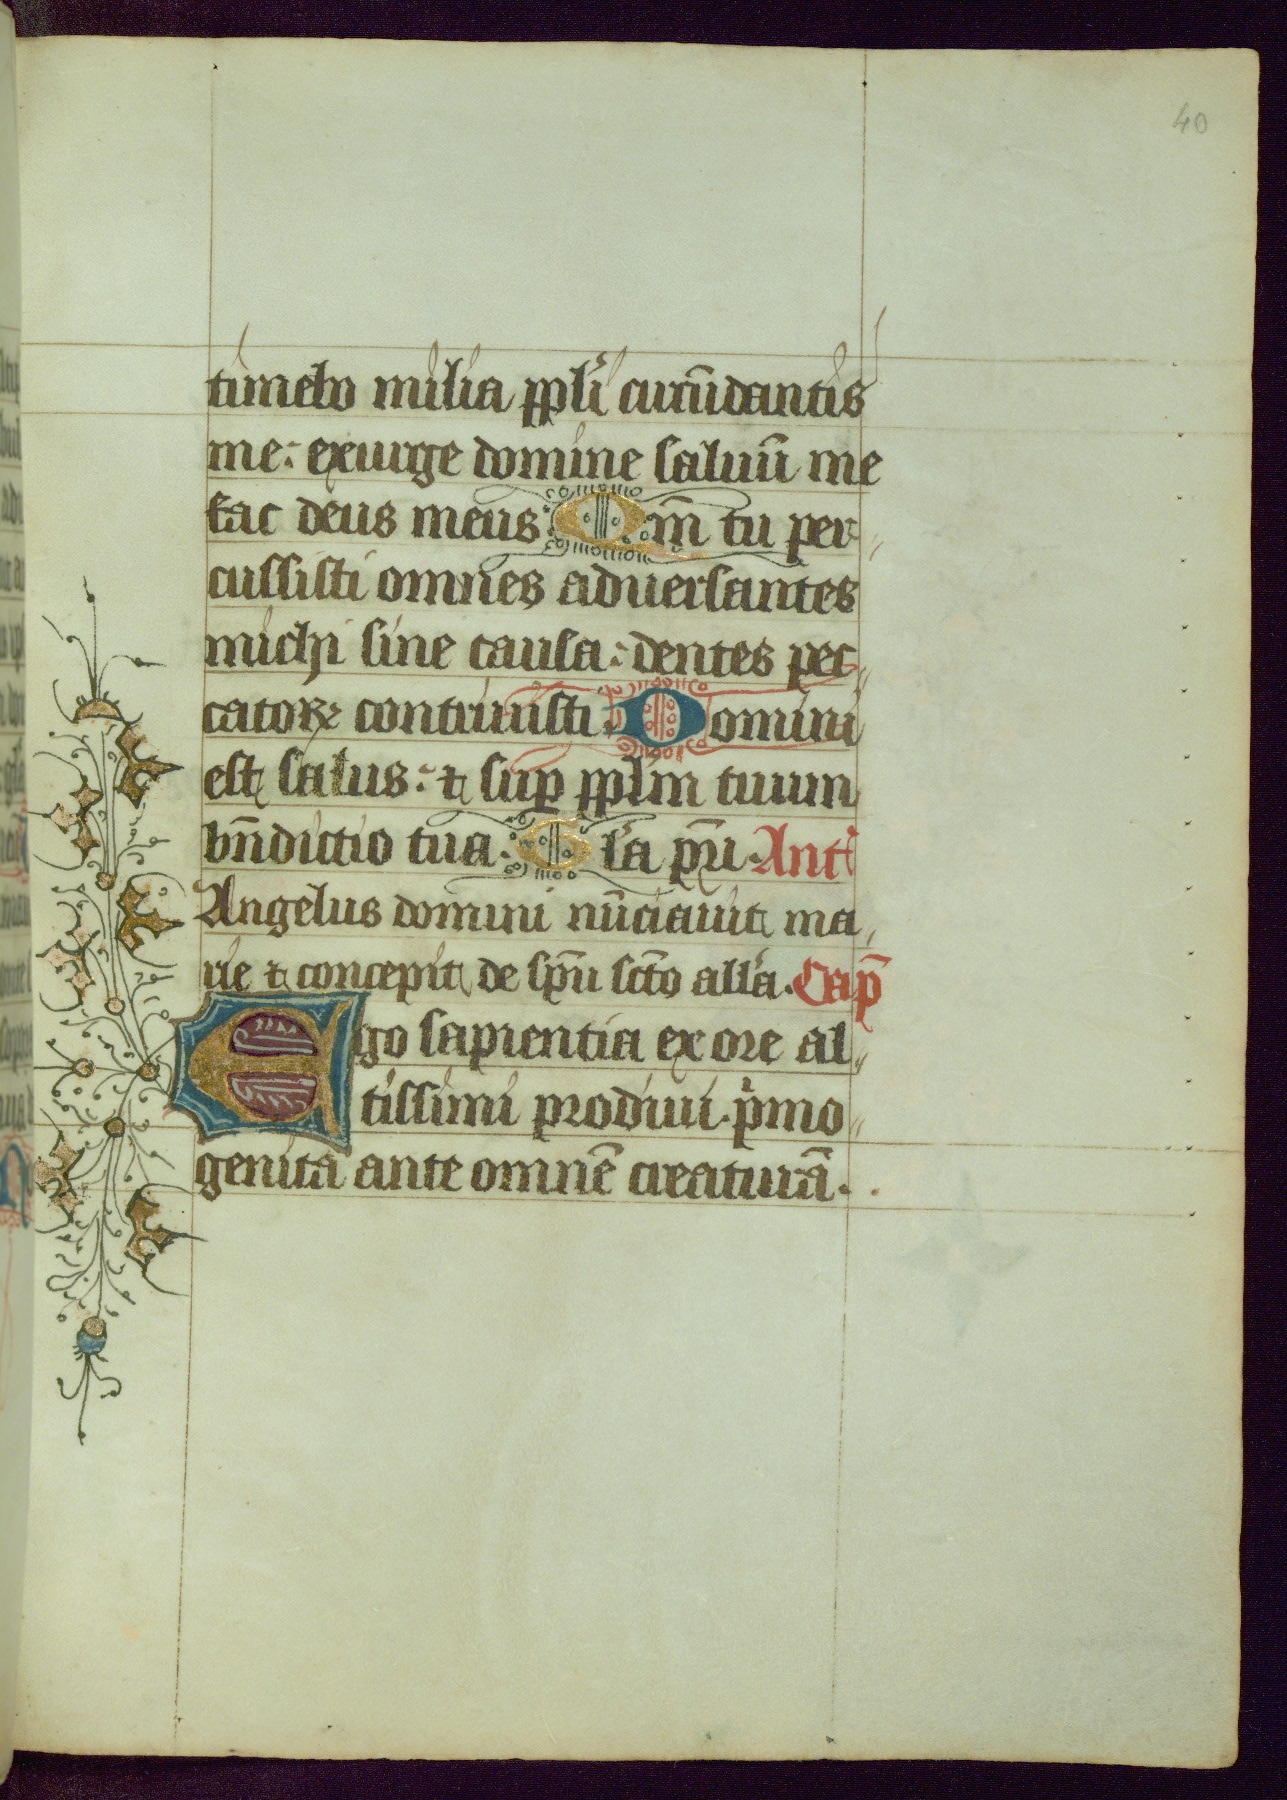 40
timebo milia ppli circūdantis
me: exurge domine saluū me
fac deus meus Qm̄ tu per
cussisti omnes aduersantes
michi sine causa: dentes pec
catoꝝ contriuisti. Domini
est salus: ⁊ suꝑ pplm tuum
bn̄dictio tua. Gla pr̄i. Ant
Angelus domini nūciauit ma
rie ⁊ concepit de spū scto alla. Cap̄
Ego sapientia ex ore al
tissimi prodiui. pͥmo
genita ante omnē creaturā.